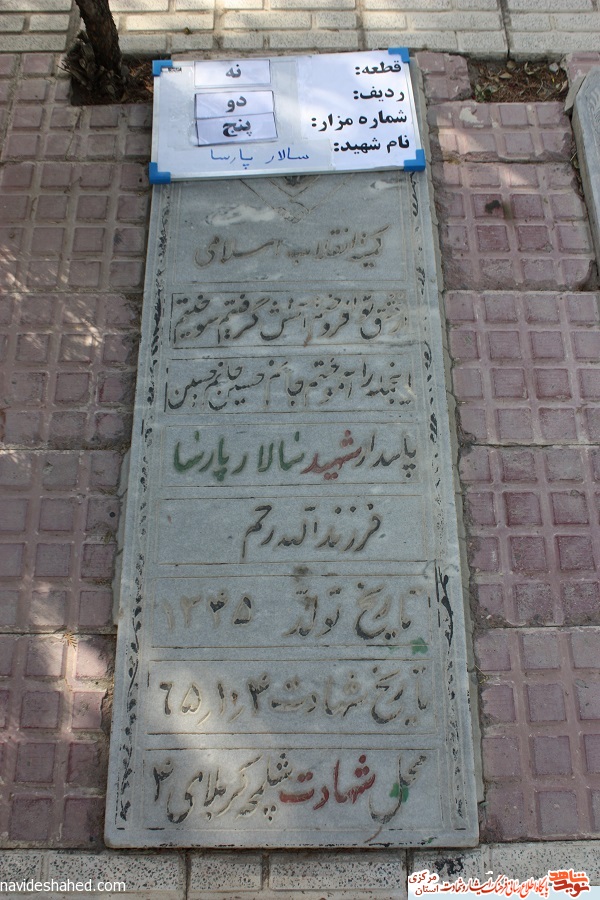 قطعه: نه
ردیف: دو
شماره مزار: پنج
نام شهید: سالار پارسا
کمیته انقلاب اسلامی
از عشق تو افروختم آتش گرفتم سوختم
اینجمله را آموختم جانم حسین جانم حسین
پاسدار شهید سالار پارسا
فرزند الله رحم
تاریخ تولد ۱۳۴۵
تاریخ شهادت ۶۵٫۱۰٫۴
محل شهادت شلمچه کربلای ۴
navideshahed.com
نوید شاهد
پایگاه اطلاع رسانی فرهنگ ایثار و شهادت
استان مرکزی